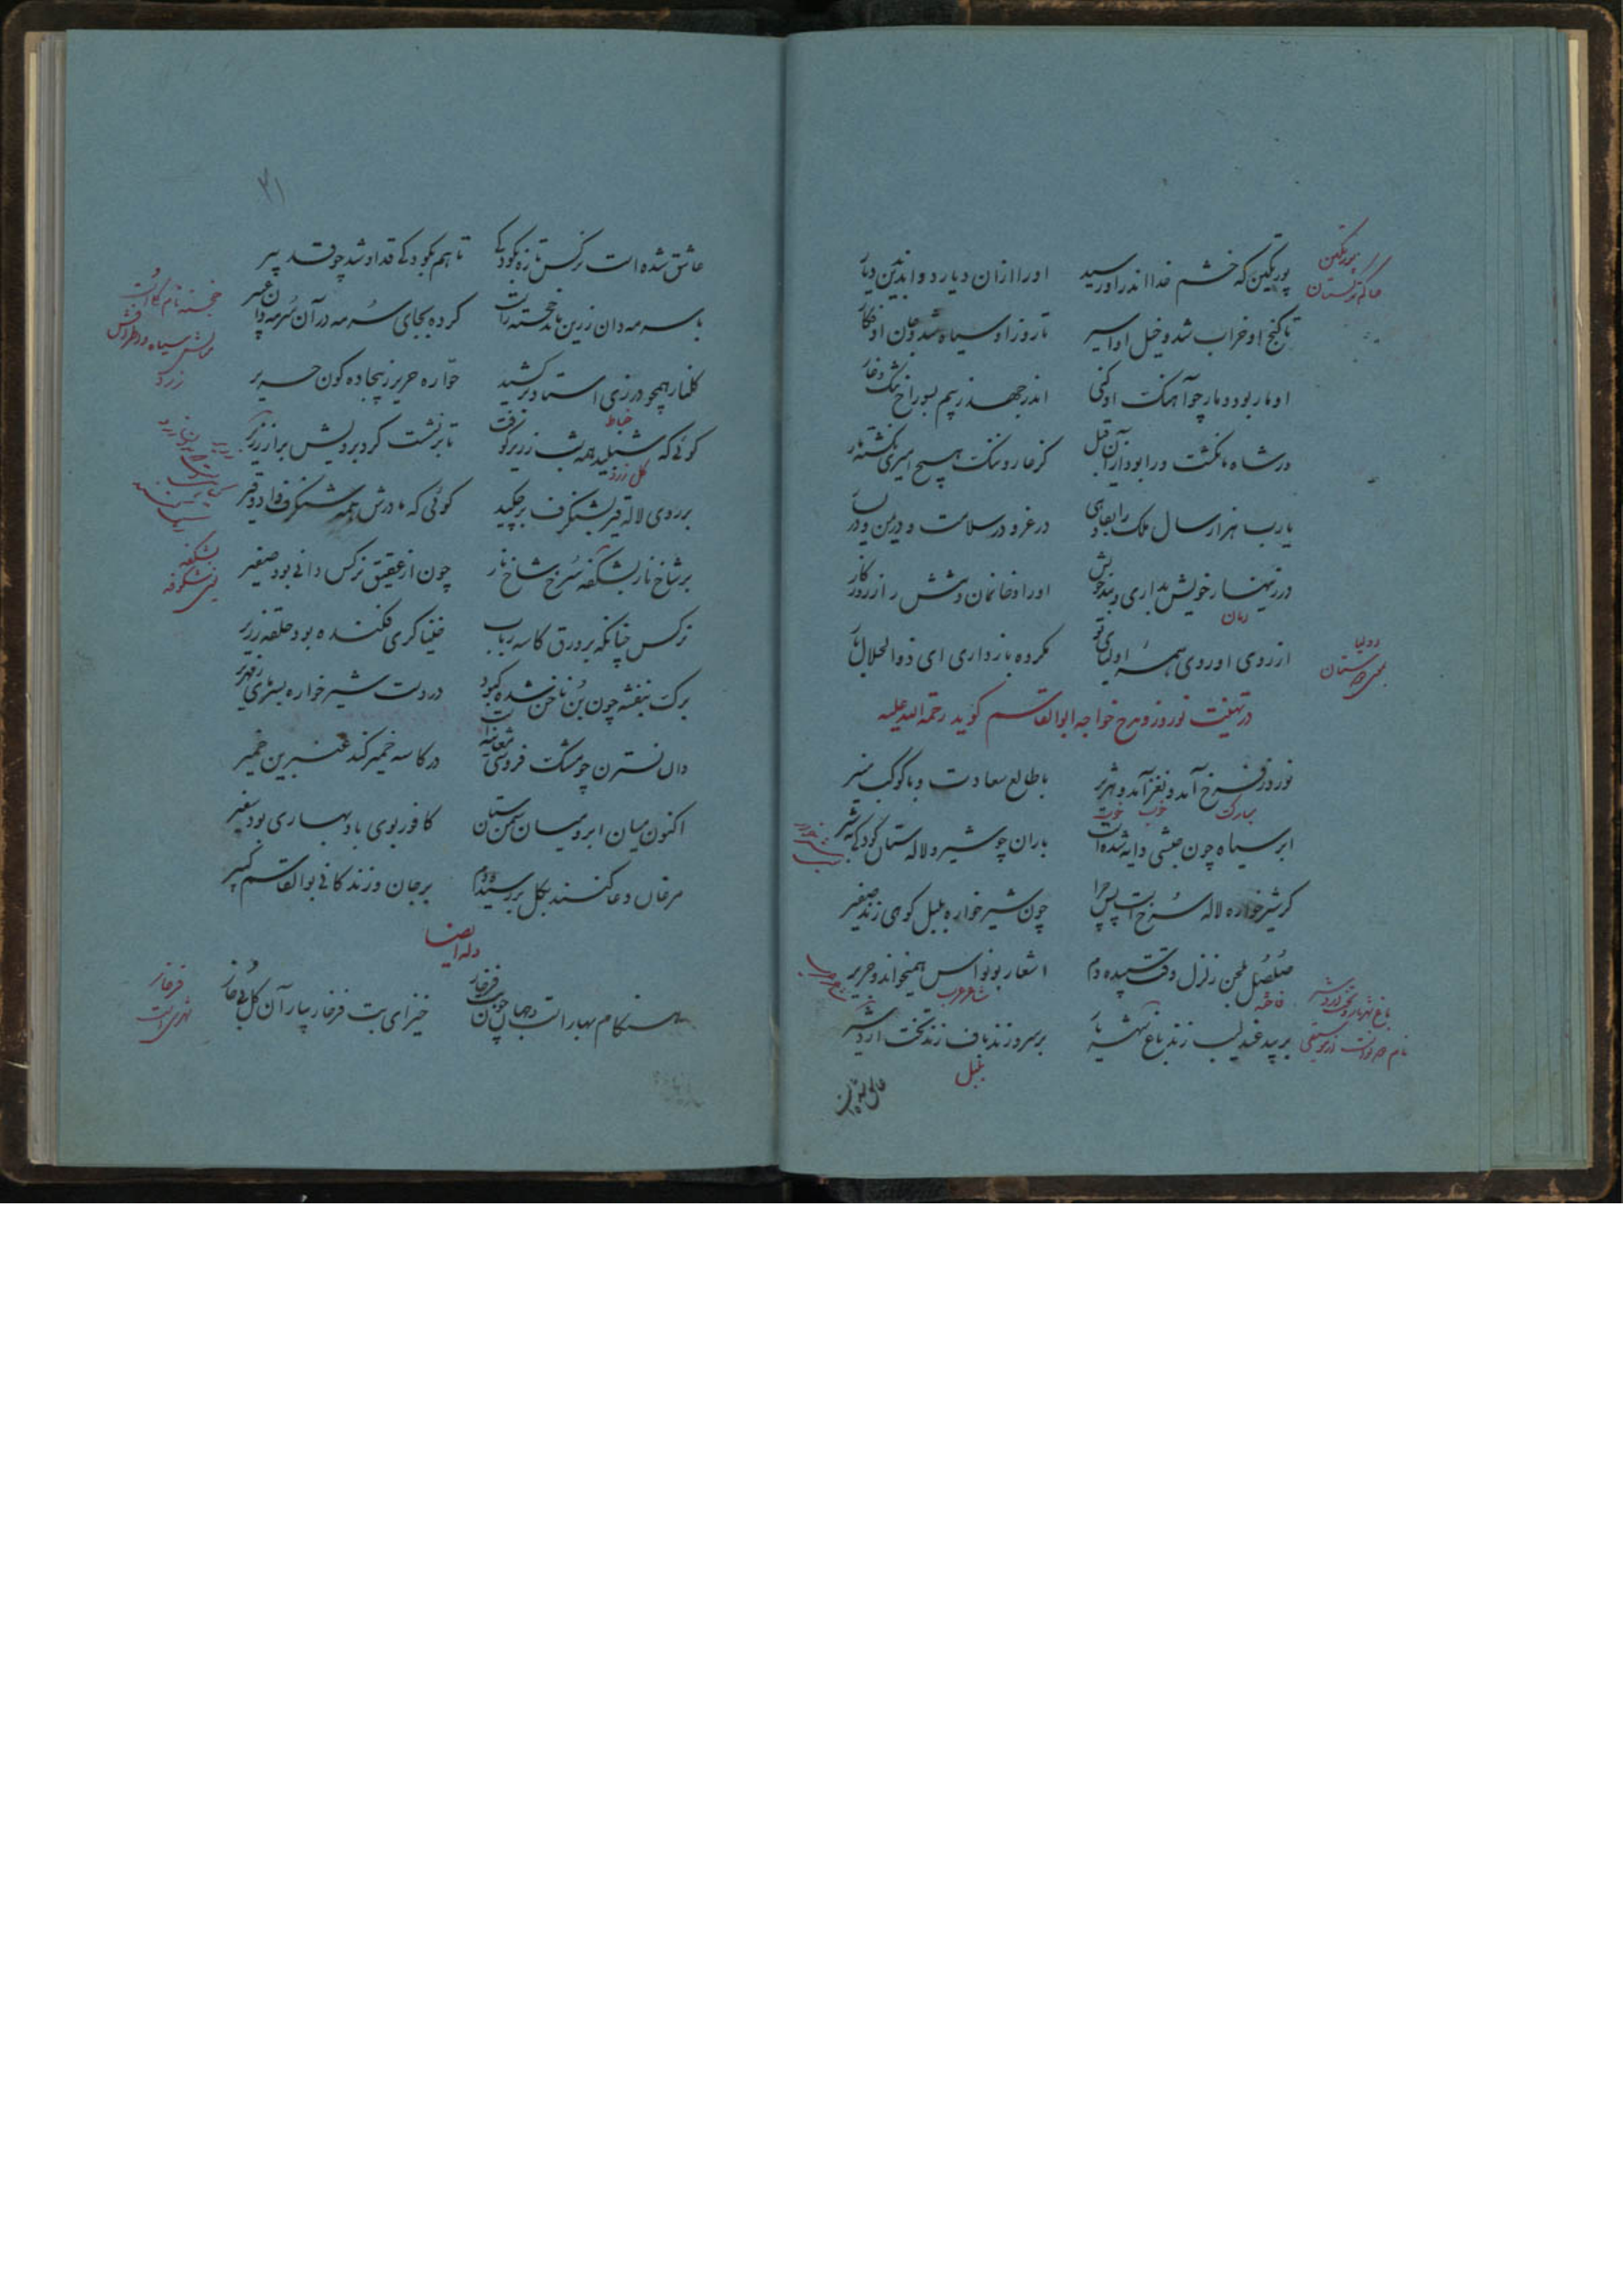 پورتکین که خشم خدا اندر او رسید اورا ازان دیار دواند بدین دیار
پورتکین
حاکم ترکستان
تا گنج او خراب شد و خیل او اسیر تا روز او سیاه شد و جان او فکار
او مار بود و مار چو آهنگ او کنی اندر جهد ز بیم بسوراخ تنگ و غار
در شاه نکشت ورا بود از آن قبل کز عار و ننگ هیچ امیری نکشته مار
یارب هزار سال ملک را بقا دهی در عز و در سلامت و در یمن و در یسار
در زینهار خویش بداری و بند خویش اورا و خانمان و تنش را ز روزگار
امان
از روی او و روی همه اولیای تو مکروه باز داری ای ذوالجلال بار
در تهنیت نوروز و مدح خواجه ابوالقاسم گوید رحمة الله علیه
نوروز فرخ آمد و نغز آمد و هژیر با طالع سعادت و با کوکب منیر
مبارک خوب خوب
ابر سیاه چون حبشی دایه شده است باران چو شیر و لاله ستان کودکی بشیر
گر شیرخواره لاله سرخ است پس چرا چون شیرخواره بلبل کوهی زند صفیر
صلصل بلحن زلزل وقت سپیده دم اشعار بونواس همیخواند و جریر
فاخته شاعر عرب
بر بید عندلیب زند باغ شهریار بر سرو زند باف زند تخت اردشیر
باغ شهریار و تخت اردشیر
نام دو نواست از موسیقی
بلبل
عاشق شده
۳۱
عاشق شده است نرگس تازه بکودکی تا هم بکودکی قد او شد چو قد پیر
با سرمه دان زرین ماند خجسته راست کرده بجای سرمه در آن سرمه دان عبیر
خجسته نام گلی است
میانش سیاه و اطرافش
زرد
گلنار همچو درزی استاد برکشید قواره حریر ز بیجاده گون حریر
خیاط
گوئی که شنبلید همه شب زریر کوفت تا بر نشست گرد برویش بر از زریر
گل زرد
بر روی لاله قیر بشنگرف بر چکید گوئی که مادرش همه شنگرف داد و قیر
بر شاخ نار بشکفه سرخ شاخ نار چون از عقیق نرگس دانی بود صغیر
بشکفه
یعنی شکوفه
نرگس چنانکه بر ورق کاسه رباب خنیاگری فکنده بود حلقه زریر
برگ بنفشه چون بن ناخن شده کبود در دست شیرخواره بسرمای زمهریر
وان نسترن چو مشک فروشی معاینه است در کاسه خمیر کند عنبرین خمیر
اکنون میان ابر و میان سمن ستان کافور بوی باد بهاری بود سفیر
مرغان دعا کنند بگل بر سپیده دم بر جان و زندگانی بوالقاسم کبیر
وله ایضا
هنگام بهار است و جهان چون بت فرخار خیز ای بت فرخار بیار آن گل بی خار
فرخار
شهری است